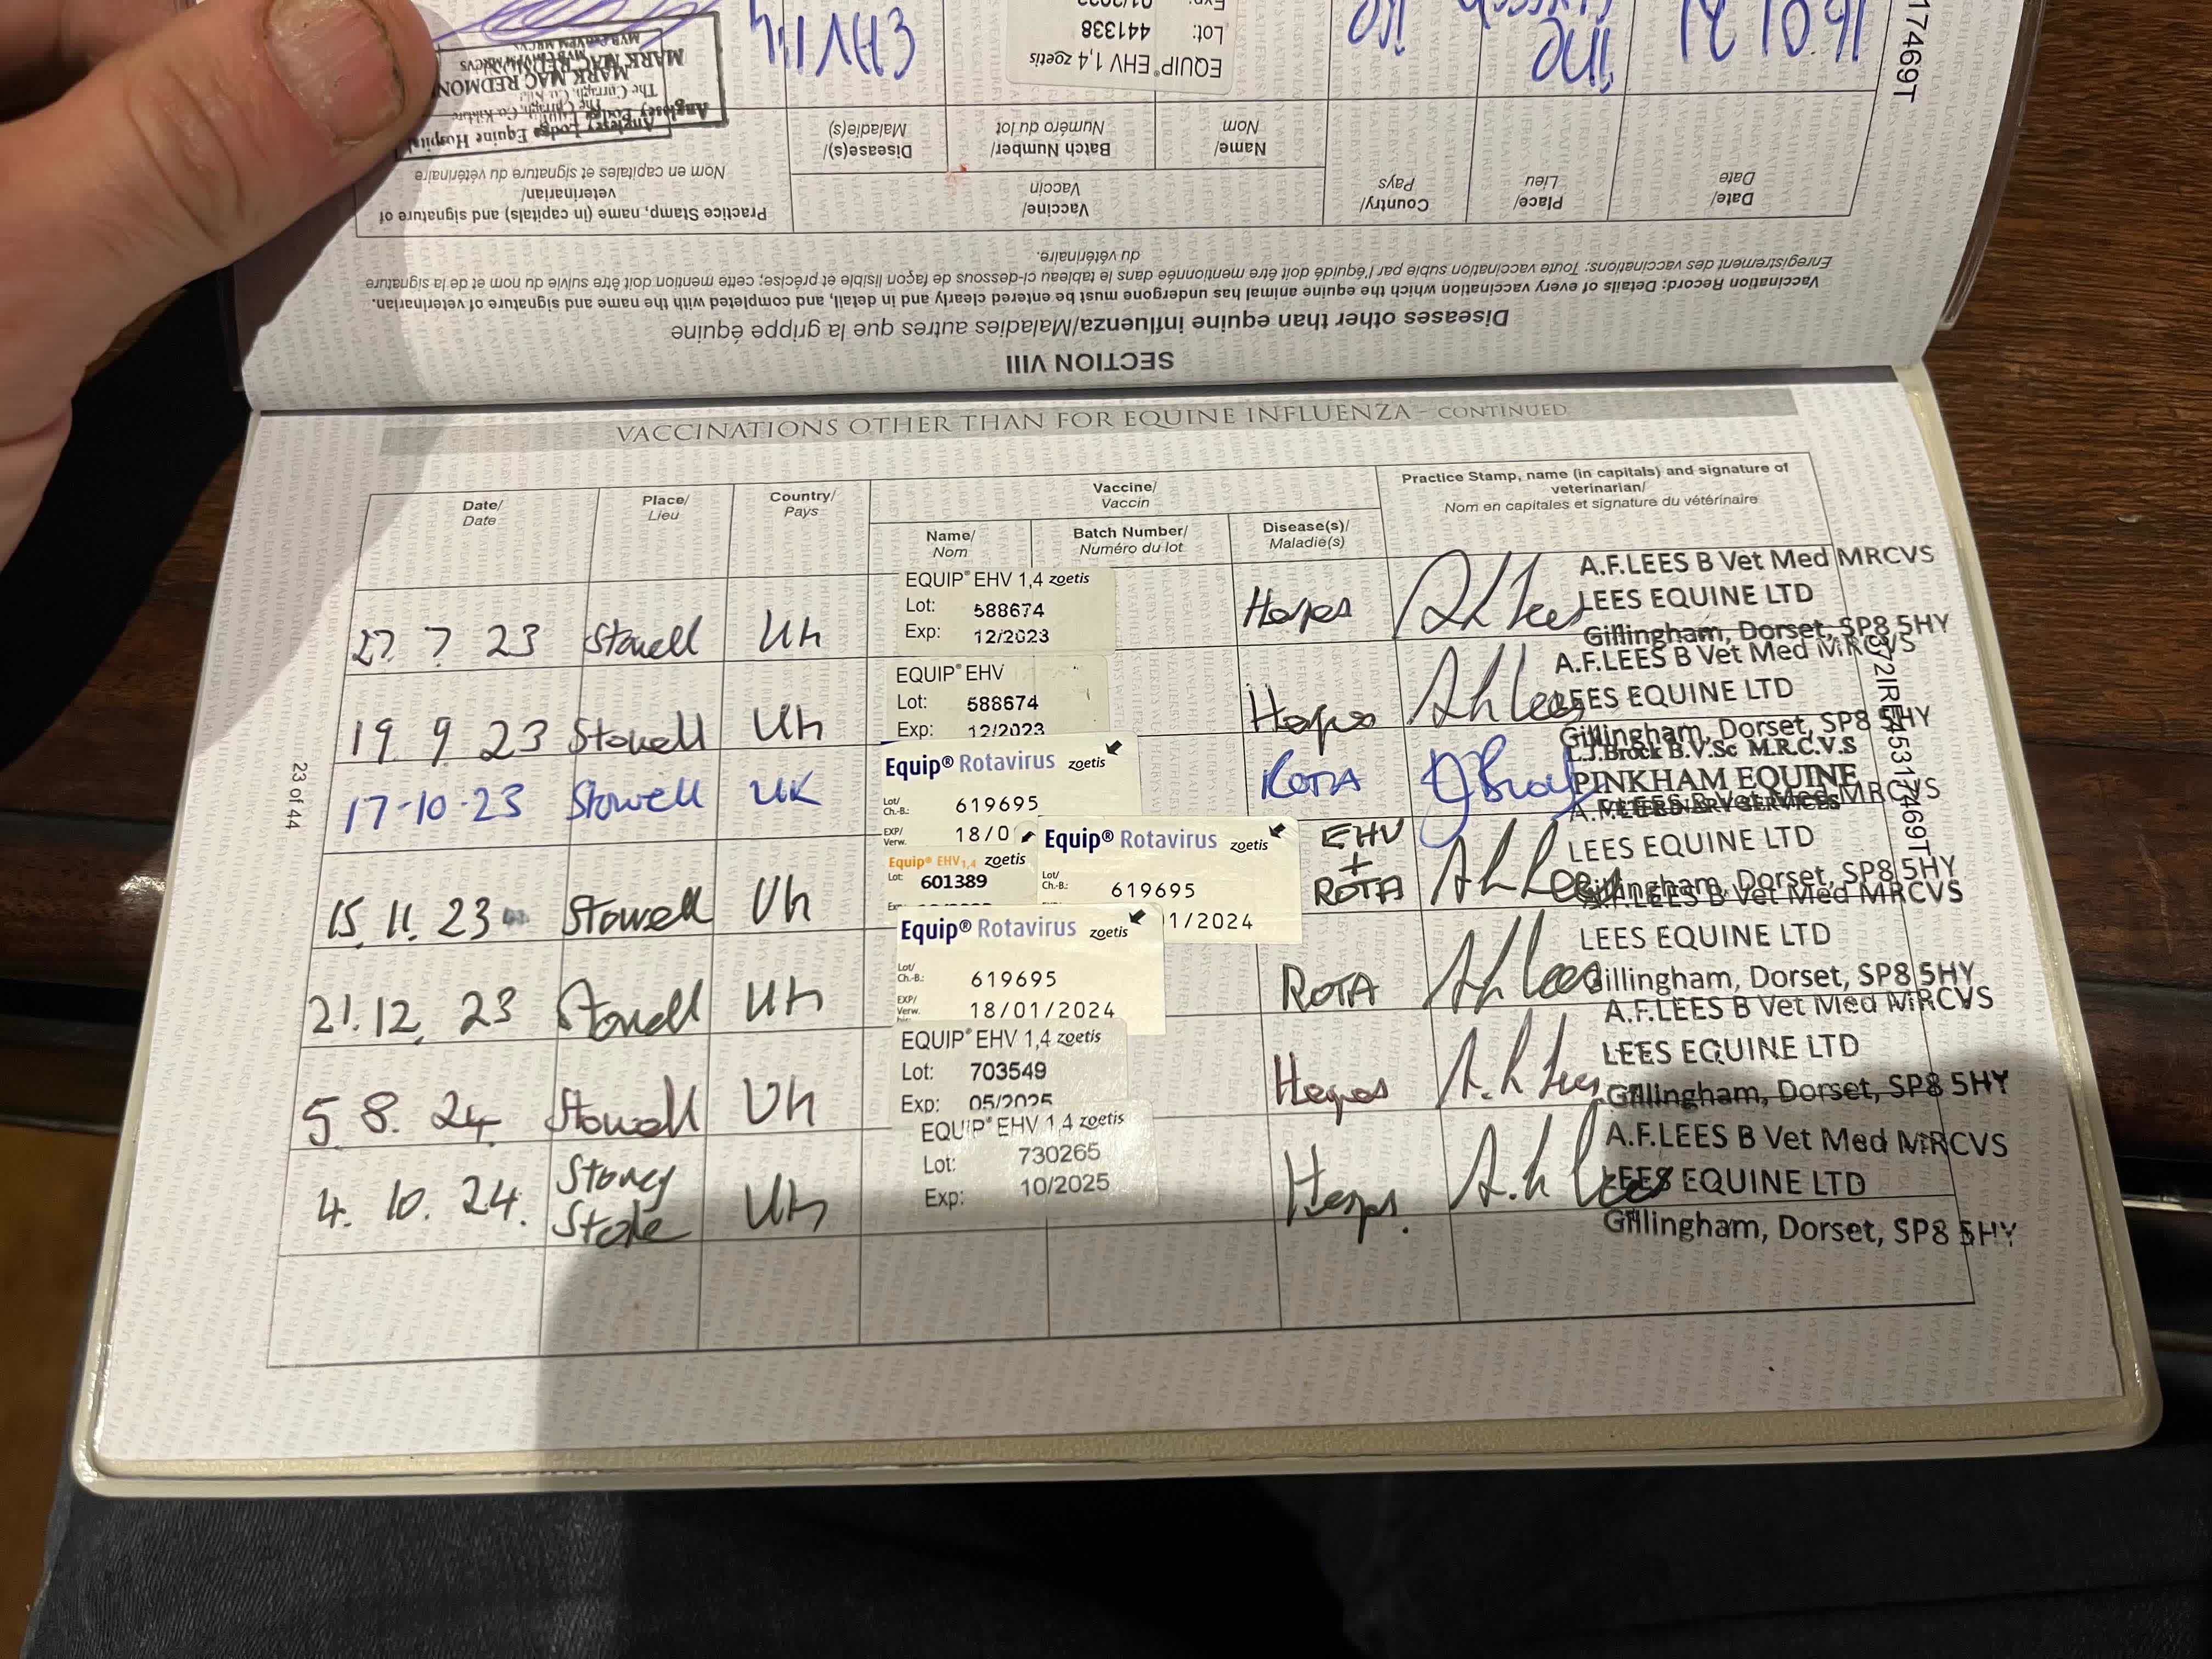 17469T
16 01 21
EHV 1,4
EQUIP® EHV 1,4 zoetis
Lot: 441338
Exp:
Anglesey Lodge Equine Hospital
The Curragh, Co. Kildare
MARK MAC REDMOND
Date/
Date
Place/
Lieu
Country/
Pays
Vaccine/
Vaccin
Name/
Nom
Batch Number/
Numéro du lot
Disease(s)/
Maladie(s)
Practice Stamp, name (in capitals) and signature of
veterinarian/
Nom en capitales et signature du vétérinaire
Vaccination Record: Details of every vaccination which the equine animal has undergone must be entered clearly and in detail, and completed with the name and signature of veterinarian.
Enregistrement des vaccinations: Toute vaccination subie par l'équidé doit être mentionnée dans le tableau ci-dessous de façon lisible et précise; cette mention doit être suivie du nom et de la signature
du vétérinaire.
Diseases other than equine influenza/Maladies autres que la grippe équine
SECTION VIII
VACCINATIONS OTHER THAN FOR EQUINE INFLUENZA - CONTINUED
Date/
Date
Place/
Lieu
Country/
Pays
Vaccine/
Vaccin
Name/
Nom
Batch Number/
Numéro du lot
Disease(s)/
Maladie(s)
Practice Stamp, name (in capitals) and signature of
veterinarian/
Nom en capitales et signature du vétérinaire
27. 7 23 Stowell Uk
EQUIP® EHV 1,4 zoetis
Lot: 588674
Exp: 12/2023
Herpes
A.F.LEES B Vet Med MRCVS
LEES EQUINE LTD
Gillingham, Dorset, SP8 5HY
19. 9 23 Stowell Uk
EQUIP® EHV
Lot: 588674
Exp: 12/2023
Herpes
A.F.LEES B Vet Med MRCVS
LEES EQUINE LTD
Gillingham, Dorset, SP8 5HY
17-10-23 Stowell UK
Equip® Rotavirus zoetis
Lot/ Ch.-B.: 619695
EXP/ Verw. 18/0
ROTA
L.J.Brock B.V.Sc M.R.C.V.S
PINKHAM EQUINE
VETERINARY SERVICES
15. 11. 23 Stowell Uk
Equip® EHV1,4 zoetis
Lot: 601389
Equip® Rotavirus zoetis
Lot/ Ch.-B.: 619695
1/2024
EHV
+
ROTA
A.F.LEES B Vet Med MRCVS
LEES EQUINE LTD
Gillingham, Dorset, SP8 5HY
21. 12. 23 Stowell Uk
Equip® Rotavirus zoetis
Lot/ Ch.-B.: 619695
EXP/ Verw. 18/01/2024
ROTA
A.F.LEES B Vet Med MRCVS
LEES EQUINE LTD
Gillingham, Dorset, SP8 5HY
5. 8. 24 Stowell Uk
EQUIP® EHV 1,4 zoetis
Lot: 703549
Exp: 05/2025
Herpes
A.F.LEES B Vet Med MRCVS
LEES EQUINE LTD
Gillingham, Dorset, SP8 5HY
4. 10. 24. Stoney
Uk
EQUIP® EHV 1,4 zoetis
Lot: 730265
Exp: 10/2025
Herps.
A.F.LEES B Vet Med MRCVS
LEES EQUINE LTD
Gillingham, Dorset, SP8 5HY
23 of 44